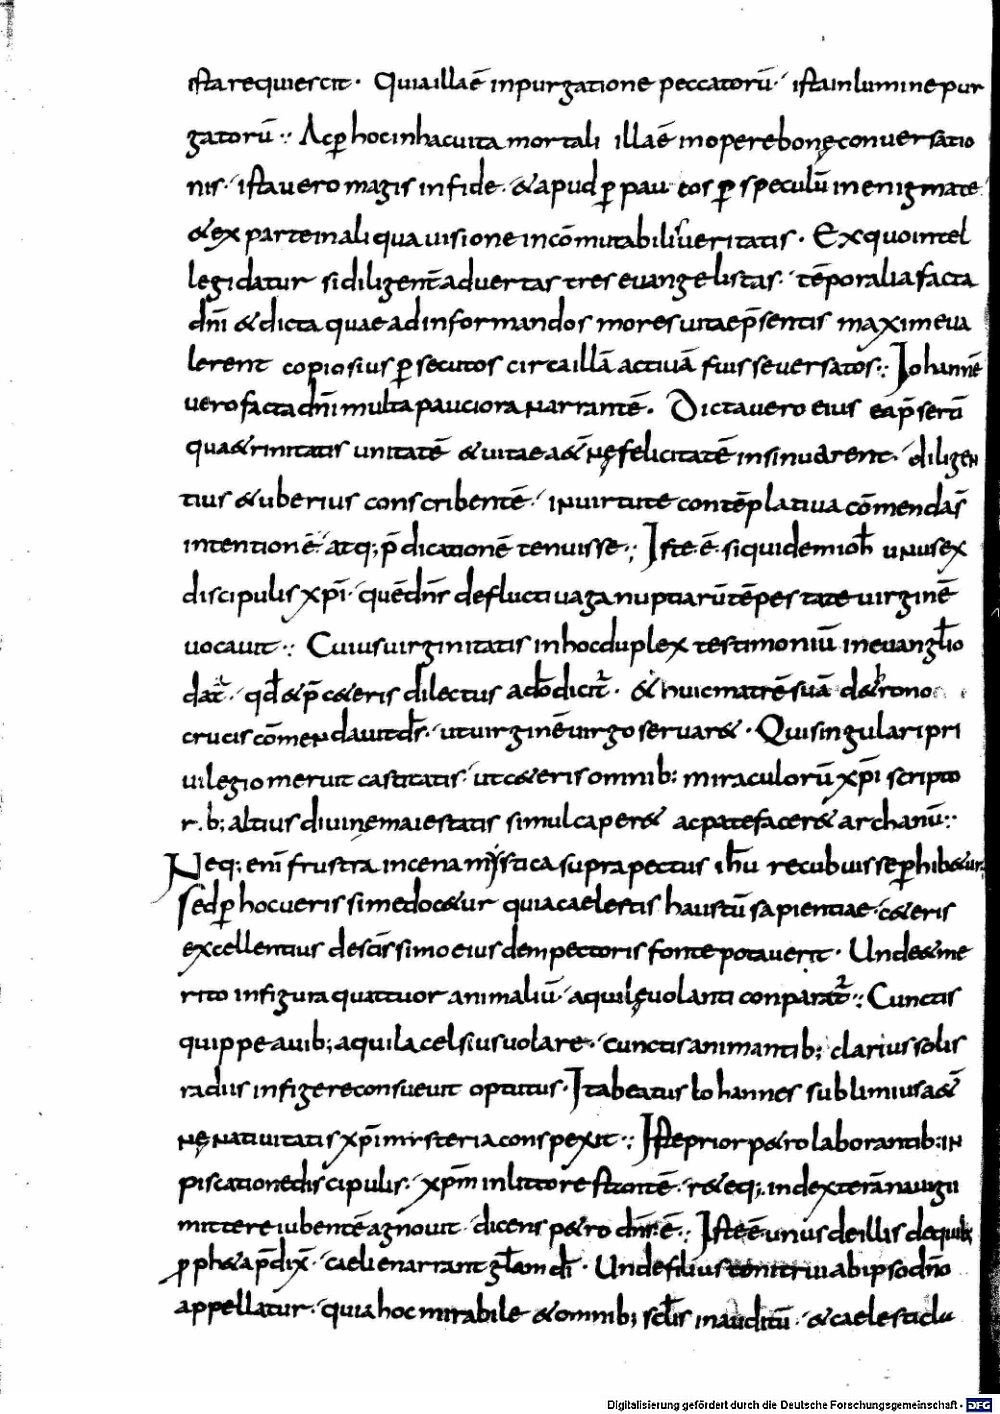 ista requiescit · Quia illa ē in purgatione peccatorū · ista in lumine pur
gatorū ·: Ac p̄ hoc in hac vita mortali illa ē in opere bonę conversatio
nis · ista vero magis in fide · & apud p̄ pau cos p̄ speculū in enigmate
& ex parte in aliqua visione incōmutabilis veritatis · Ex quo intel
legi datur si diligent̄ advertas tres evangelistas · tēporalia facta
dn̄i & dicta quae ad informandos mores vitae p̄sentis maxime va
lerent copiosius p̄secutos circa illā activā fuisse versatos ·: Iohannē
vero facta dn̄i multa pauciora narrantē · Dicta vero eius ea p̄sertī
qua& rinitatis unitatē & vitae a&̄nę felicitatē insinuarent · diligen
tius & uberius conscribentē · in virtute contēplativa cōmendās
intentionē · atq; p̄dicationē tenuisse ·; Iste ē siquidem ioh̄ unus ex
discipulis xp̄i · quē dn̄s de fluctivaga nuptiarū tēpestate virginē
vocavit ·: Cuius virginitatis in hoc duplex testimoniū in evangl̄io
dat̄ · qđ & p̄ c&eris dilectus a dō dicit̄ · & huic matrē suā de
crucis cōmendavit dn̄s · ut virginē virgo servar& · Qui singulari pri
vilegio meruit castitatis · ut c&eris omnib; miraculorū xp̄i scripto
rib; altius divinę maiestatis simul caper& ac patefacer& archanū ·:
Neq; enī frustra in cena mystica supra pectus ih̄u recubuisse p̄hib&ur
Sed p̄ hoc veris sime doc&ur quia caelestis haustū sapientiae · c&eris
excellentius de scīssimo eiusdem pectoris fonte potaverit · Unde & me
rito in figura quattuor animaliū · aquilę volanti conparat̄ ·: Cunctis
quippe avib; aquila celsius volare · cunctis animantib; clarius solis
radiis infigere consuevit optutus · Ita beatus Iohannes sublimius a&̄
nę nativitatis xp̄i misteria conspexit ·: Iste prior p&ro laborantib; in
piscatione discipulis · xp̄m in littore stantē · r&eq; in dexterā navigii
mittere iubentē agnovit · dicens p&ro dn̄s ē ·: Iste ē unus de illis de quib;
p̄ph&a p̄dix̄ · caeli enarrant gl̄am dī · Unde filius tonitrui ab ipso dn̄o
appellatur · quia hoc mirabile & omnib; scl̄is inauditū · & caelesti clu